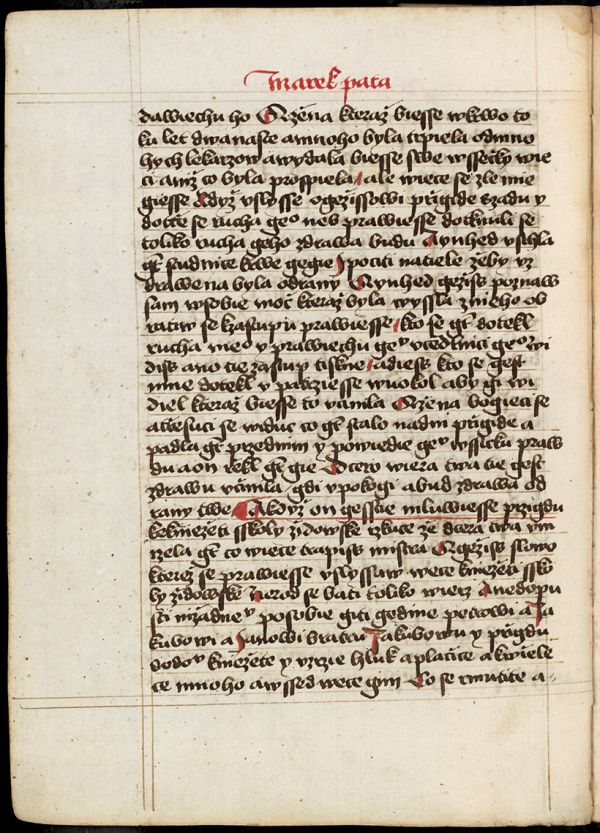 Marek pata
dawiechu ho A zena kteraz biesse w krwo to
ku let dwanaste a mnoho byla trpiela od mno
hych lekarzow a wydala biesse swe wssecky wie
ci aniz co byla prospiela / ale wiece se zle mie
giesse A dyz vslysse o gezissowi prigide szadu y
dotce se rucha geo neb prawiesse dotknuli se
toliko rucha geho zdrawa budu A ynhed vschla
gt studnice krwe gegie I pociti na tiele zeby vz
drawena byla od rany A ynhed geziss poznaw
sam w sobie moc kteraz byla wyssla z nieho ob
ratiw se k zastupu prawiesse / kto se gt dotekl
rucha meo y prawiechu geu vcedlnici geo wi
diss ano tie zastup tiskne / a diess kto se gest
mne dotekl y patrziesse wuokol aby gi wi
diel kteraz biesse to vcinila A zena bogieci se
a trzesuci se widuc co gt stalo nad ni prigide a
padla gt przed nim y powiedie geu wssicku praw
du a on rekl gt gie Dcero wiera twa tie gest
zdrawu vcinila gdi v pokogi a bud zdrawa od
rany twe A kdyz on gesscie mluwiesse przigidu
k kniezeti sskoly zidowske rzkuce ze dcera twa vm
rzela gt co wiece trapiss mistra A geziss slowo
kterez se prawiesse vslyssaw wece kniezeti ssko
ly zidowske Nerod se bati toliko wierz A nedopu
sti nizadneu po sobie giti gedine petrowi a Ja
kubowi a Janowi bratru Jakubowu y prigidu
do dou kniezete y vzrzie hluk a placice a kwiele
ce mnoho a wssed wece gim Co se rmutite a